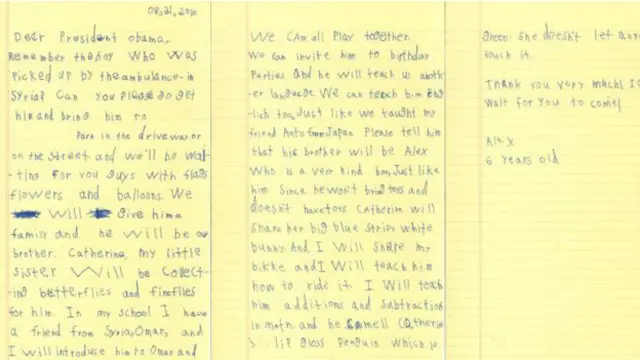 08,21,2016
Dear President obama,
Remember the boy who was
picked up by the ambulance in
Syria? Can you please go get
him and bring him to
Park in the driveway or
on the street and we'll be wai-
ting for you guys with flags
flowers and balloons. We
will give him a
family and he will be our
brother. Catherine, my little
sister will be collect-
ing butterflies and fireflies
for him. In my school I have
a friend from Syria, Omar, and
I will introduce him to Omar and
We can all play together.
We can invite him to birthday
parties and he will teach us anoth-
er language. We can teach him Eng-
lish too, Just like we taught my
friend Aoto from Japan. Please tell him
that his brother will be Alex
who is a very kind boy, Just like
him. Since he won't bring toys and
doesn't have toys Catherine will
share her big blue stripy white
bunny. And I will share my
bike and I will teach him
how to ride it. I will teach
him additions and subtractions
in math. and he smell Catherine
s lip gloss Penguin which is
green. She doesn't let any
touch it.
Thank you very much! I
wait for you to come!
Alex
6 years old